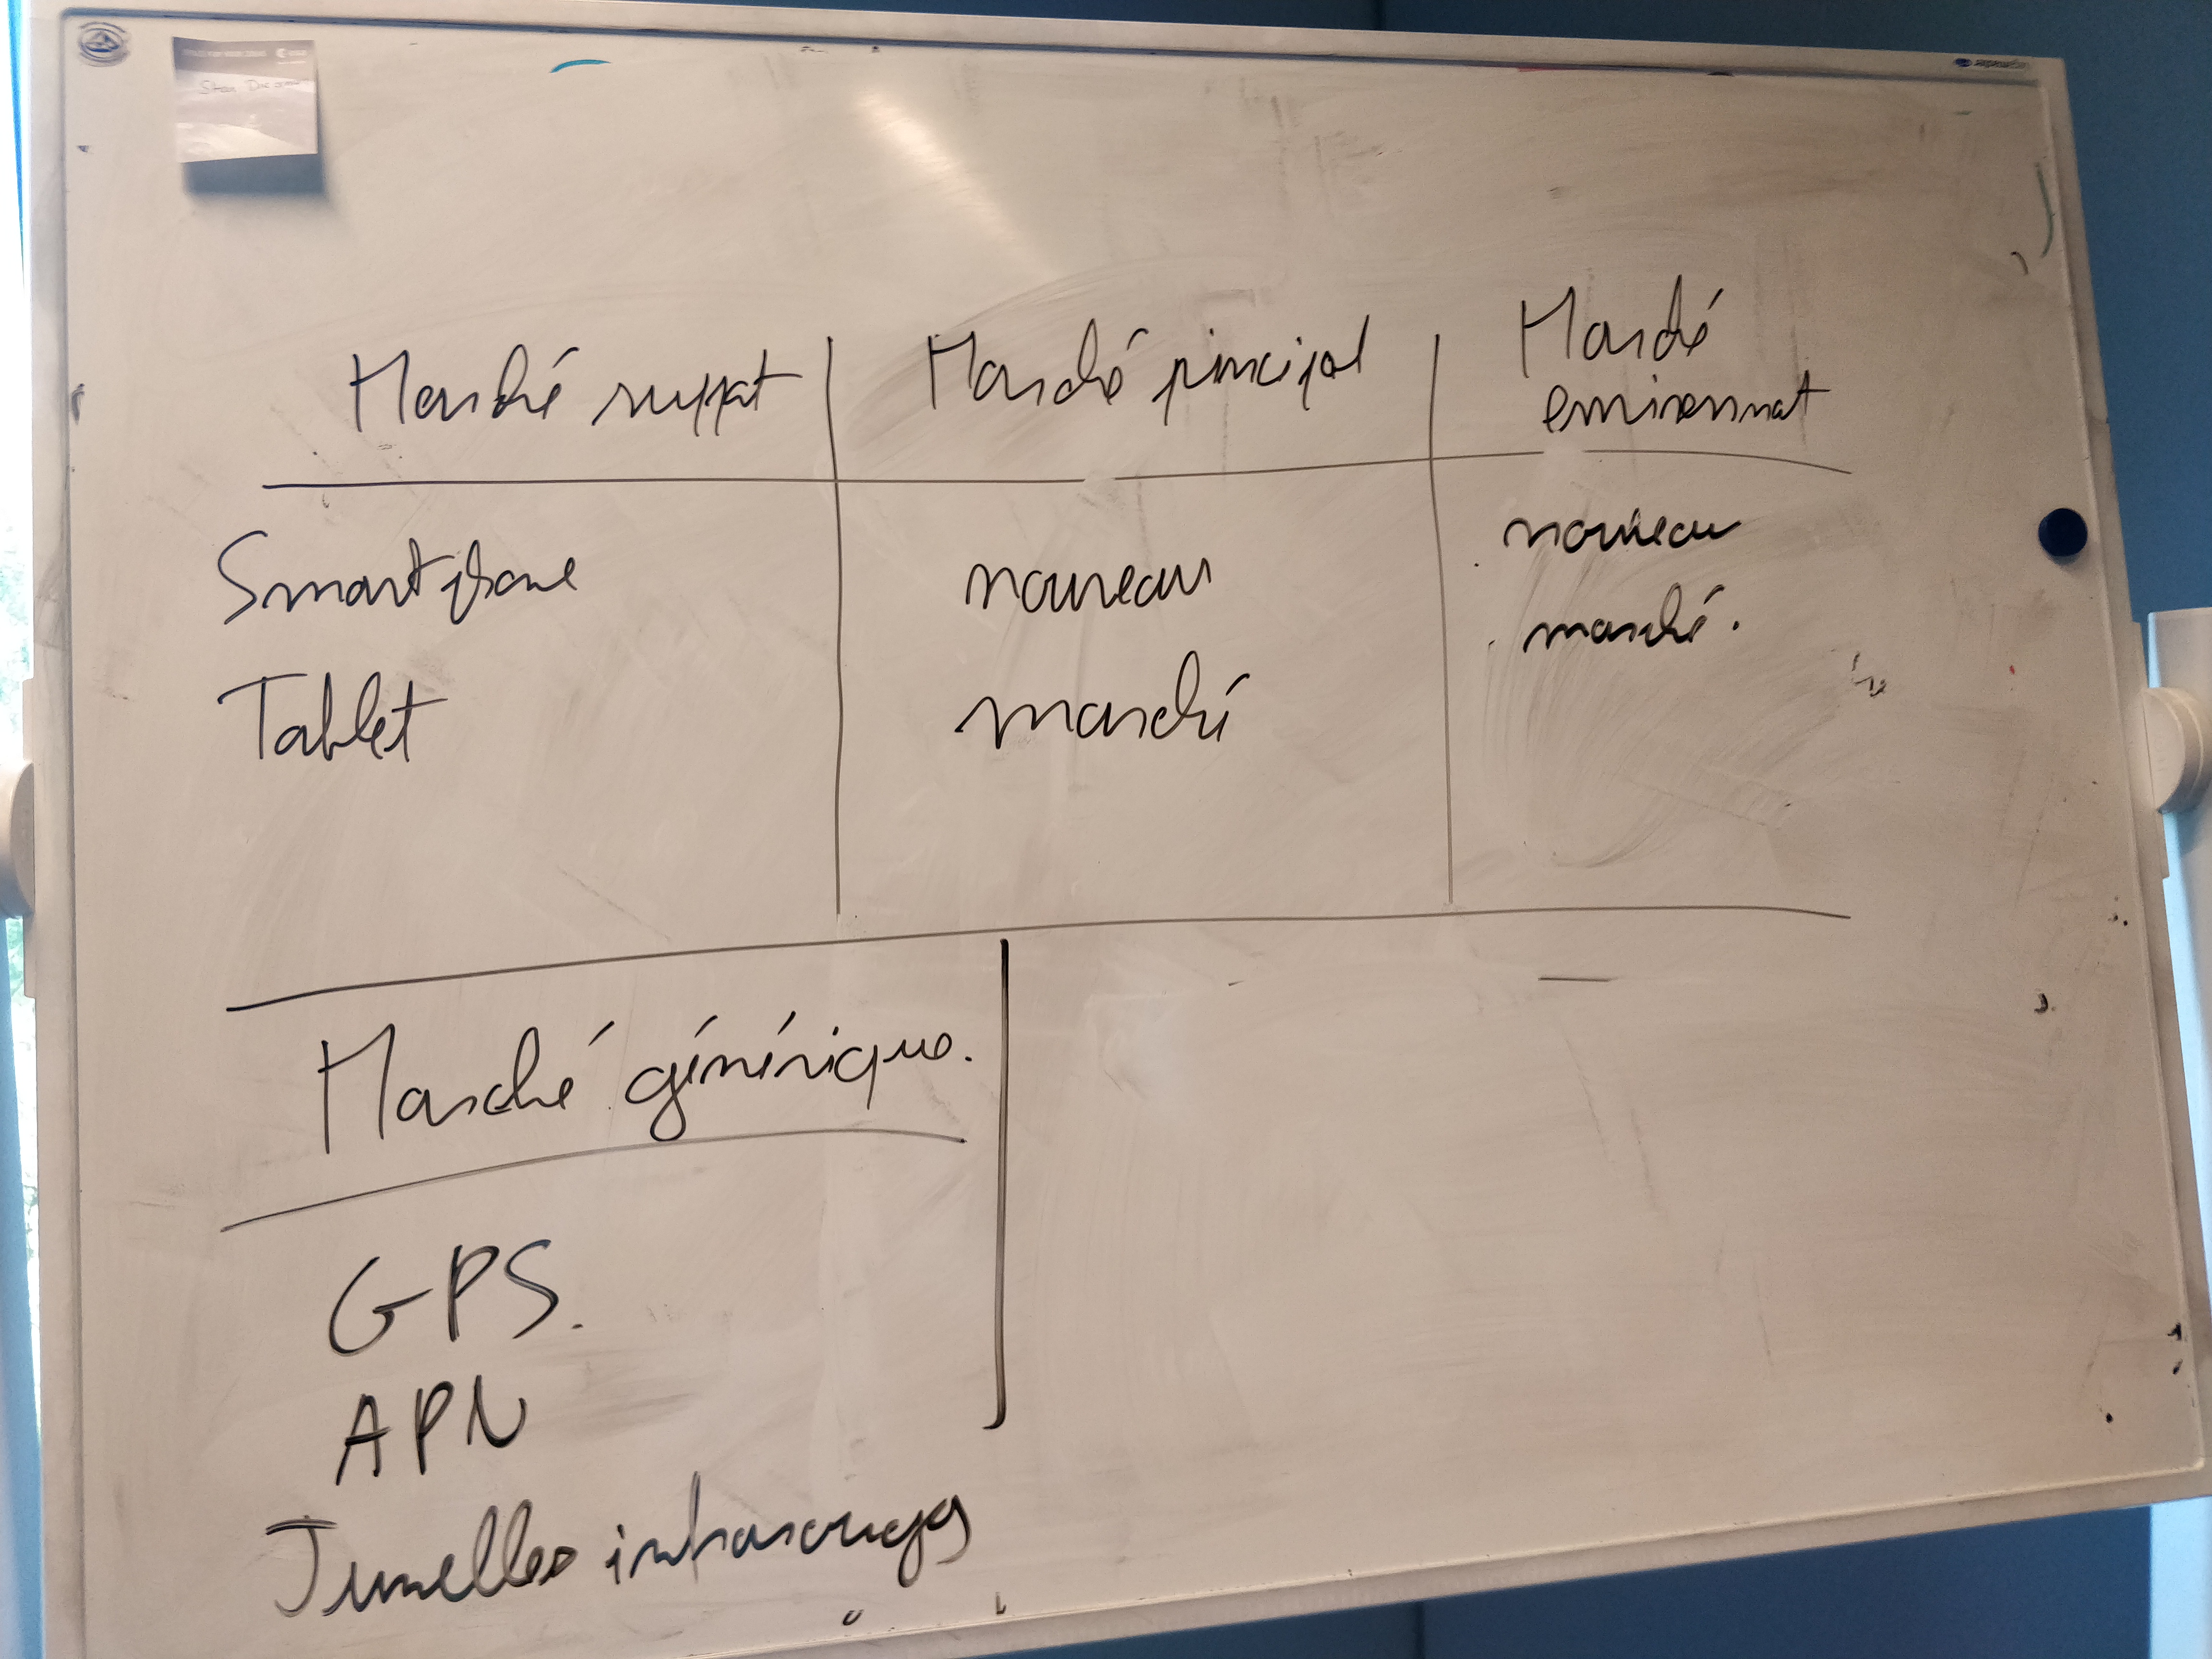 Marché suppat
Marché principal
Marché
environnat
Smartphone
Tablet
nouveau
marché
nouveau
marché.
Marché générique.
GPS.
APN
Jumelles infrarouges